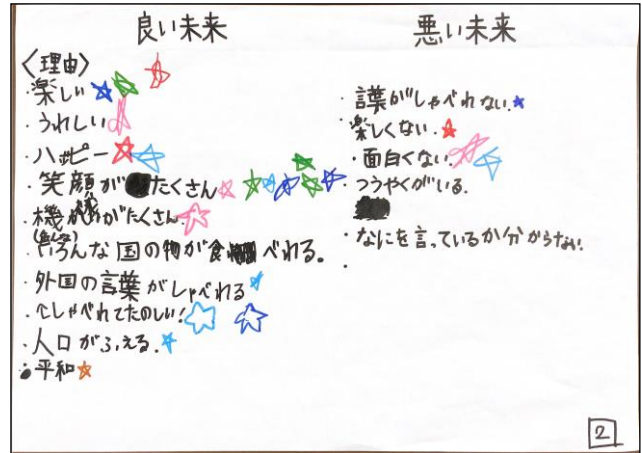 良い未来
〈理由〉
・楽しい
・うれしい
・ハッピー
・笑顔がたくさん
・機がたくさん
・いろんな国の物が食べれる。
・外国の言葉がしゃべれる
・しゃべれてたのしい!
・人口がふえる.
・平和
悪い未来
・言葉がしゃべれない.
・楽しくない.
・面白くない.
・つうやくがいる.
・なにを言っているか分からない.
・
2